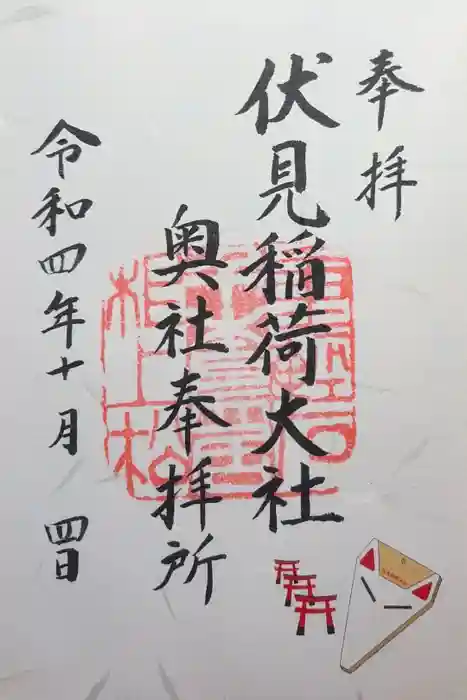 奉拝
伏見稲荷大社
奥社奉拝所
令和四年十月 四日